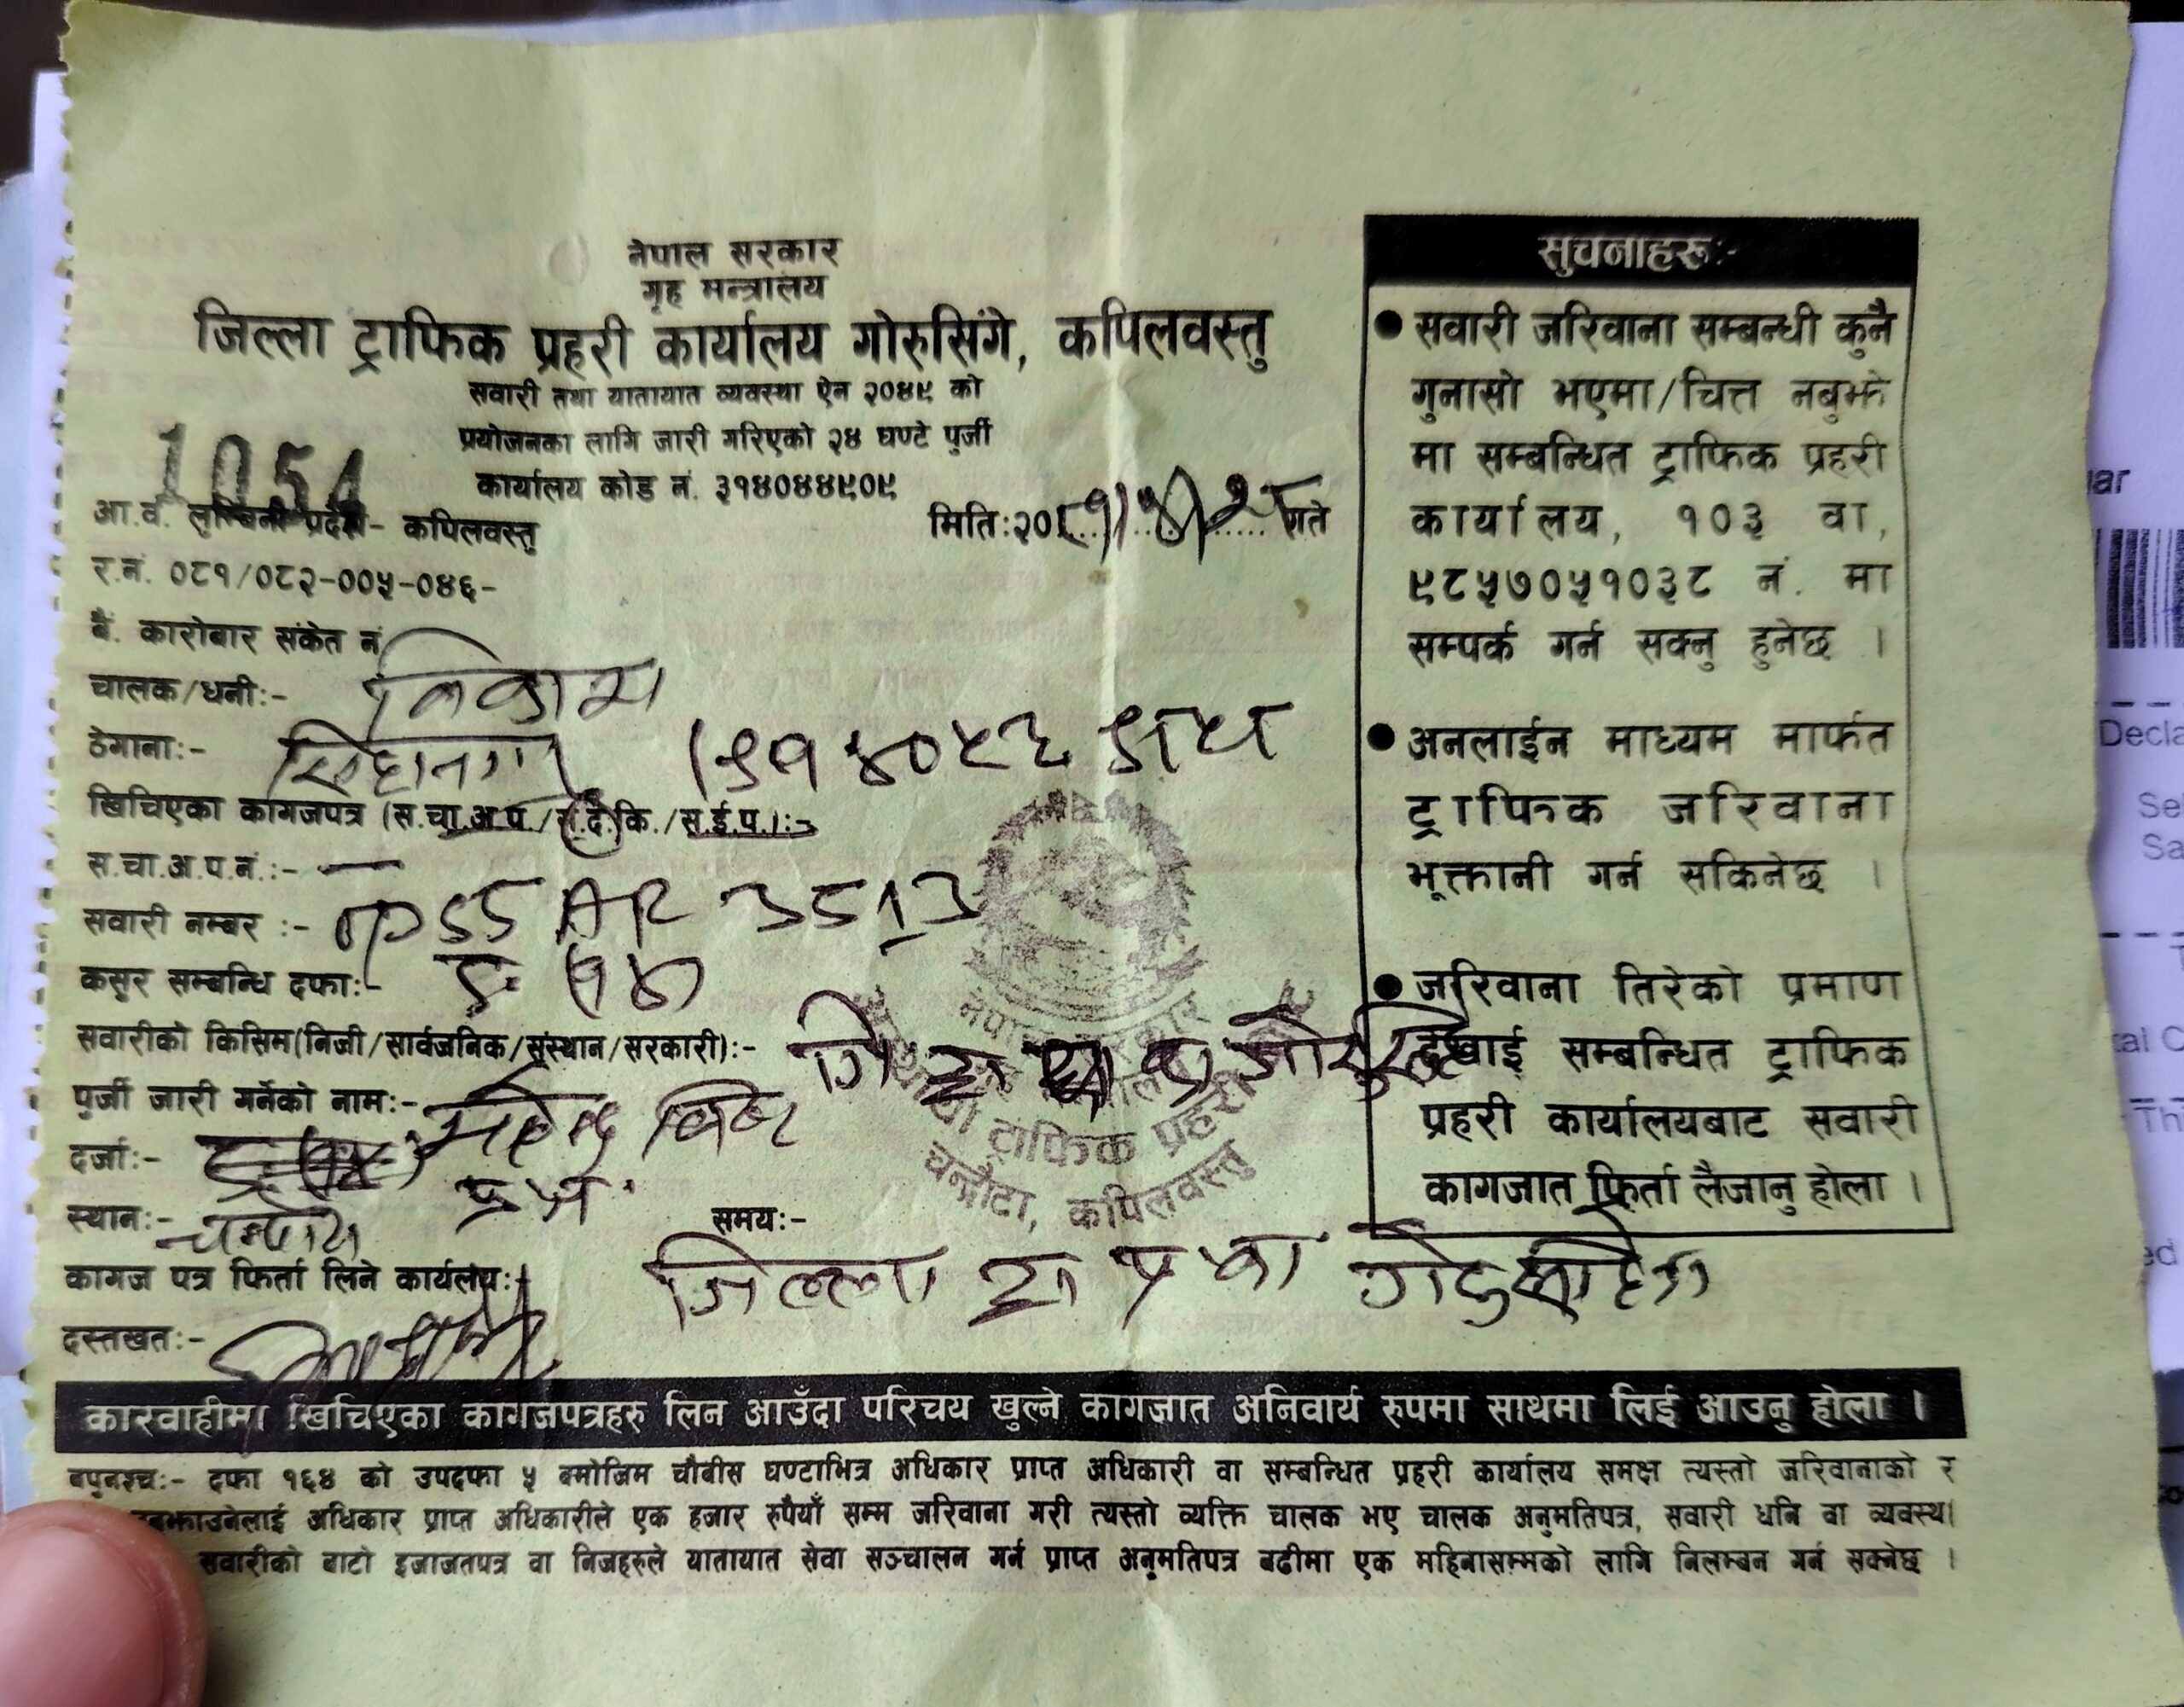 नेपाल सरकार
गृह मन्त्रालय
जिल्ला ट्राफिक प्रहरी कार्यालय गोरुसिंगे, कपिलवस्तु
सवारी तथा यातायात व्यवस्था ऐन २०४९ को
प्रयोजनका लागि जारी गरिएको २४ घण्टे पुर्जी
कार्यालय कोड नं. ३१४०४४९०९
1054
आ.व. लुम्बिनी प्रदेश- कपिलवस्तु
मिति:२०८१/४/२८ गते
र.नं. ०८१/०८२-००५-०४६-
बैं. कारोबार संकेत नं
चालक/धनी:- विकास
ठेगाना:-
खिचिएका कागजपत्र (स.चा.अ.प./स.द.कि./स.ई.प.):-
स.चा.अ.प.नं.:- —
सवारी नम्बर :- UP 55 AR 3513
कसूर सम्बन्धि दफा:-
सवारीको किसिम(निजी/सार्वजनिक/संस्थान/सरकारी):-
पुर्जी जारी गर्नेको नाम:-
दर्जा:-
स्थान:-
समय:-
कागज पत्र फिर्ता लिने कार्यलय:- जिल्ला ट्रा प्र का
दस्तखत:-
नेपाल सरकार
ट्राफिक प्रहरी
चन्द्रौटा, कपिलवस्तु
सुचनाहरु:-
● सवारी जरिवाना सम्बन्धी कुनै
गुनासो भएमा/चित्त नबुझे
मा सम्बन्धित ट्राफिक प्रहरी
कार्यालय, १०३ वा,
९८५७०५१०३८ नं. मा
सम्पर्क गर्न सक्नु हुनेछ ।
● अनलाईन माध्यम मार्फत
ट्राफिक जरिवाना
भूक्तानी गर्न सकिनेछ ।
● जरिवाना तिरेको प्रमाण
देखाई सम्बन्धित ट्राफिक
प्रहरी कार्यालयबाट सवारी
कागजात फिर्ता लैजानु होला ।
कारवाहीमा खिचिएका कागजपत्रहरु लिन आउँदा परिचय खुल्ने कागजात अनिवार्य रुपमा साथमा लिई आउनु होला ।
दफा १६४ को उपदफा ५ बमोजिम चौबीस घण्टाभित्र अधिकार प्राप्त अधिकारी वा सम्बन्धित प्रहरी कार्यालय समक्ष त्यस्तो जरिवानाको र
अधिकार प्राप्त अधिकारीले एक हजार रुपैयाँ सम्म जरिवाना गरी त्यस्तो व्यक्ति चालक भए चालक अनुमतिपत्र, सवारी धनि वा व्यवस्था
सवारीको बाटो इजाजतपत्र वा निजहरुले यातायात सेवा सञ्चालन गर्न प्राप्त अनुमतिपत्र बढीमा एक महिनासम्मको लागि निलम्बन गर्न सक्नेछ ।